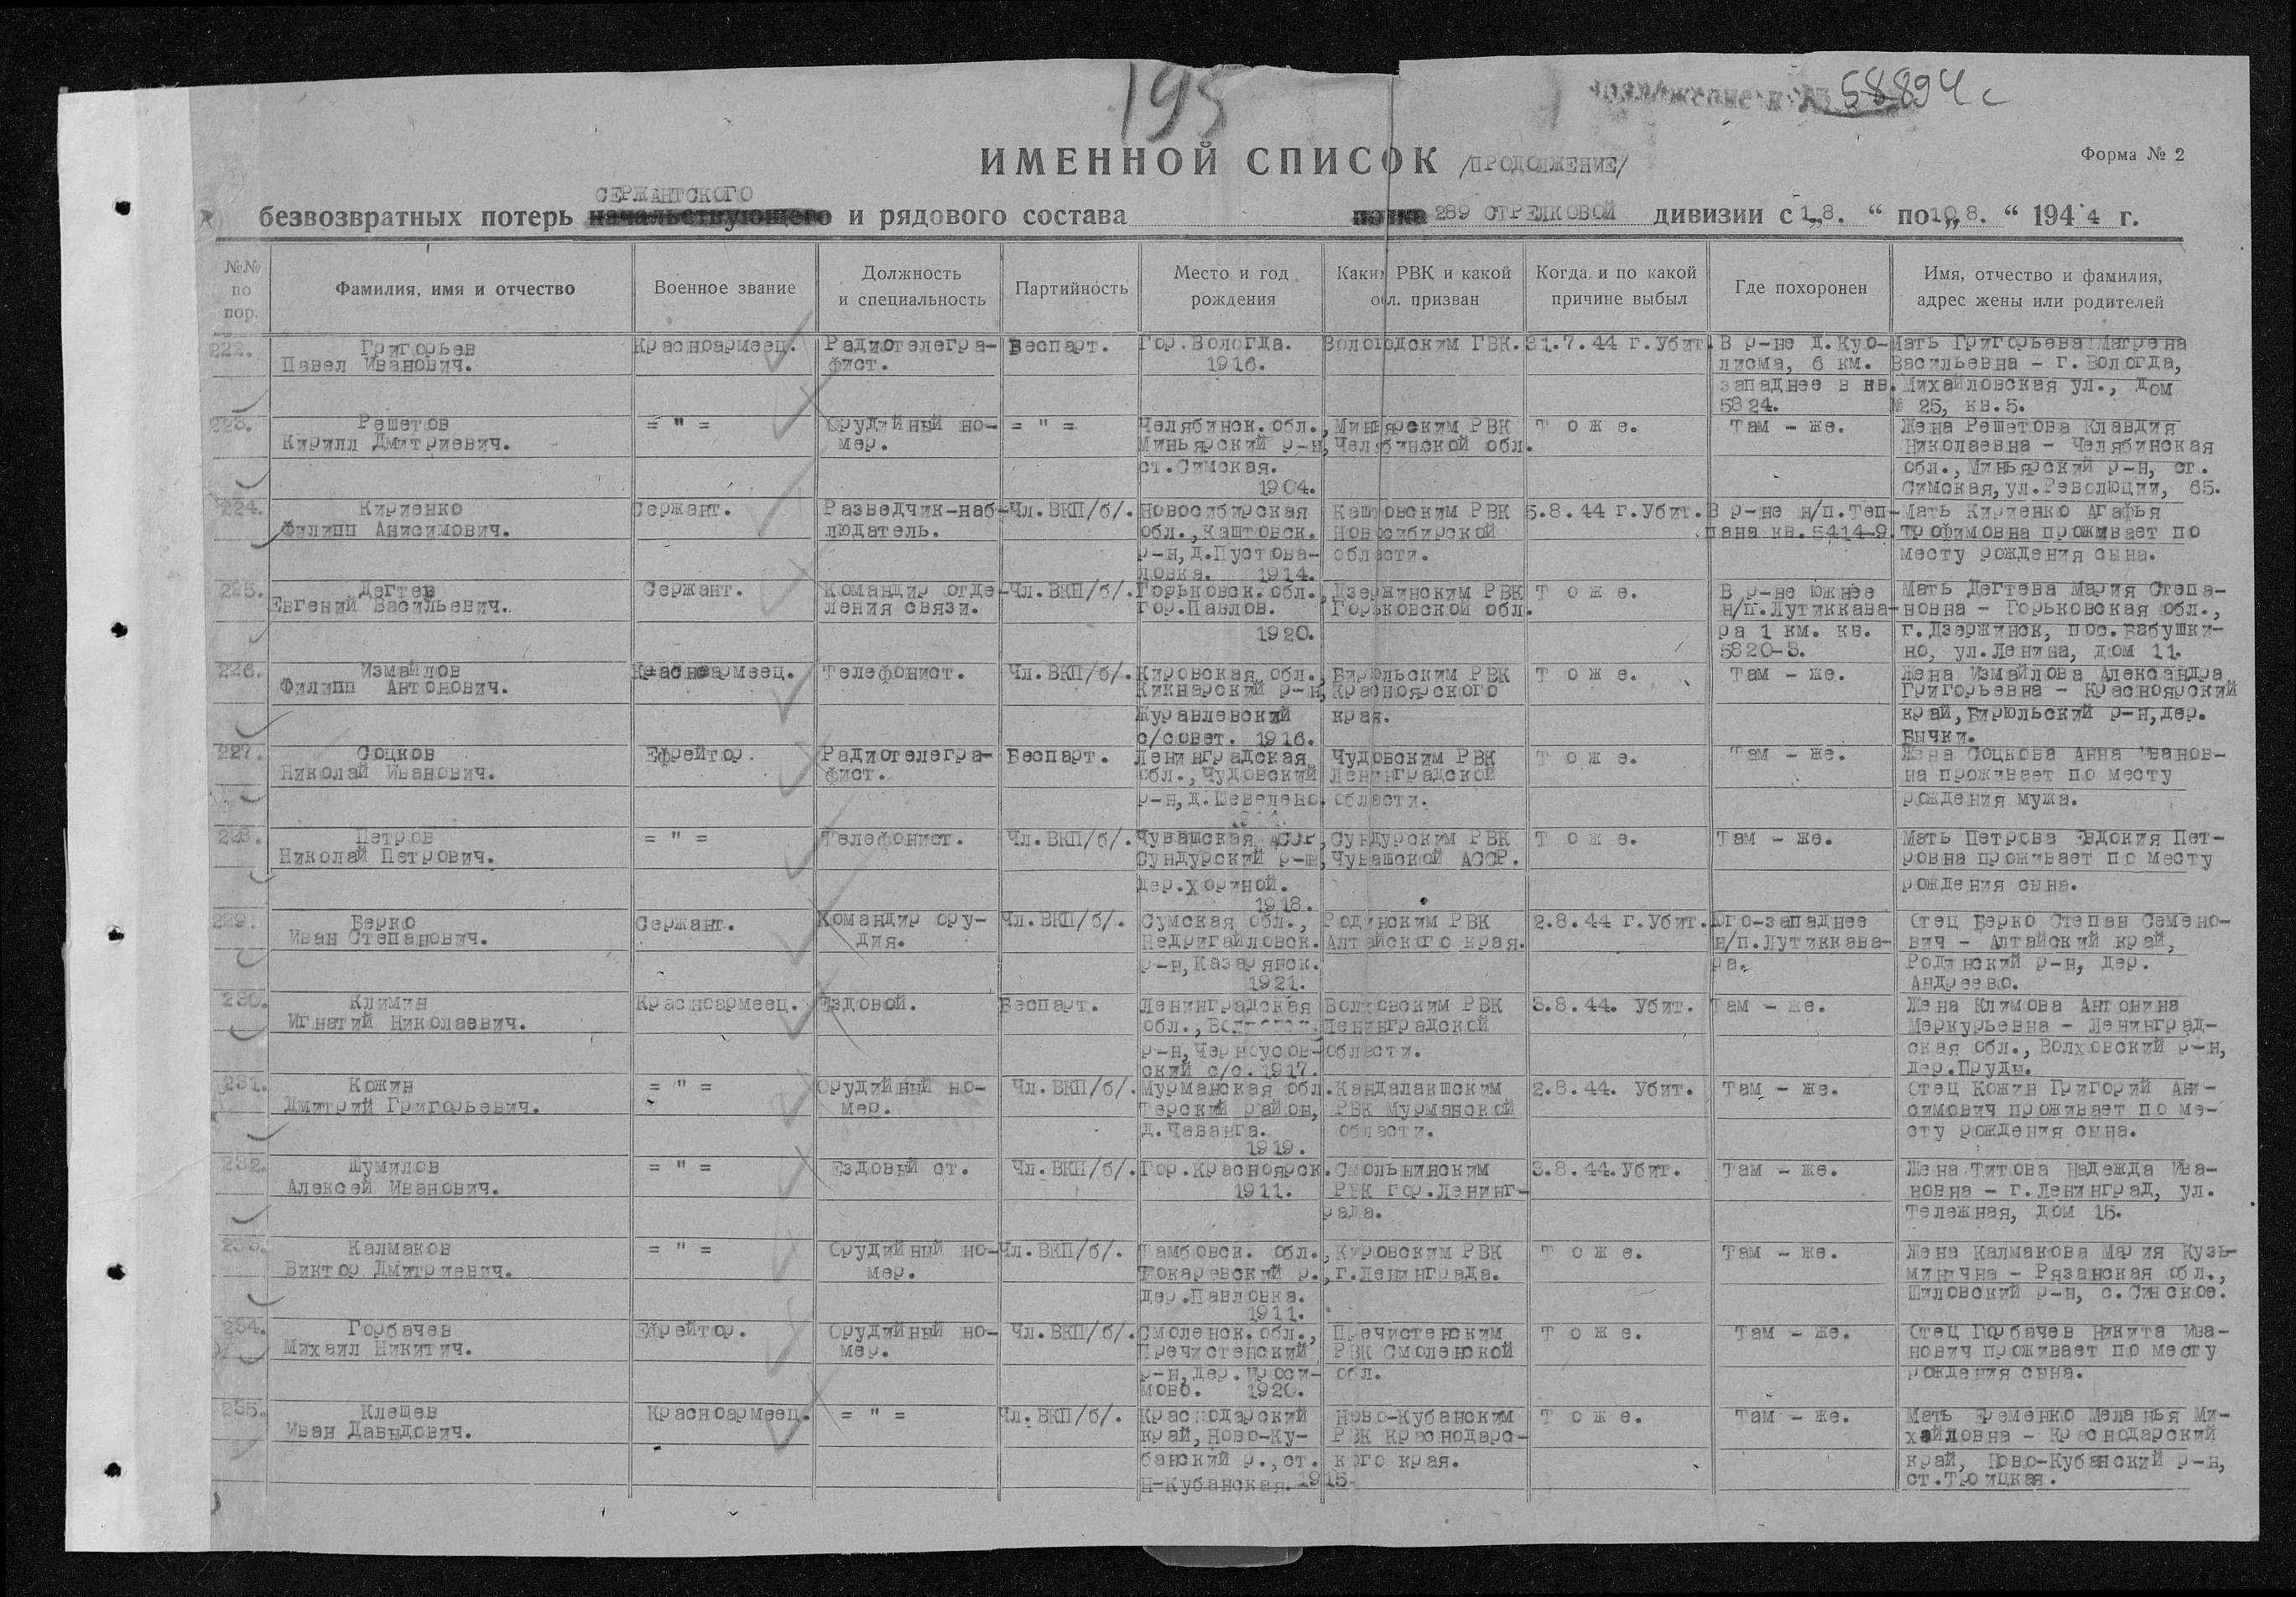 195
58894с
ИМЕННОЙ СПИСОК /ПРОДОЛЖЕНИЕ/
Форма № 2
СЕРЖАНТСКОГО
безвозвратных потерь начальствующего и рядового состава полка 289 СТРЕЛКОВОЙ дивизии с 1„8. “ по 10„8. “ 1944 г.
№№ по пор. | Фамилия, имя и отчество | Военное звание | Должность и специальность | Партийность | Место и год рождения | Каким РВК и какой обл. призван | Когда и по какой причине выбыл | Где похоронен | Имя, отчество и фамилия, адрес жены или родителей
222. Григорьев Красноармеец. Радиотелегра- Беспарт. Гор.Вологда. Вологодским ГВК. 31.7.44 г.Убит. В р-не д.Куо- Мать Григорьева Матрена
Павел Иванович. фист. 1916. лисма, 6 км. Васильевна - г.Вологда,
западнее в кв. Михайловская ул., дом
5824. № 25, кв.5.
223. Решетов = " = Орудийный но- = " = Челябинск.обл., Миньярским РВК Т о ж е. Там - же. Жена Решетова Клавдия
Кирилл Дмитриевич. мер. Миньярский р-н, Челябинской обл. Николаевна - Челябинская
ст.Симская. обл., Миньярский р-н, ст.
1904. Симская,ул.Революции, 65.
224. Кириенко Сержант. Разведчик-наб- Чл.ВКП/б/. Новосибирская Каштовским РВК 5.8.44 г.Убит. В р-не н/п.Теп- Мать Кириенко Агафья
Филипп Анисимович. людатель. обл.,Каштовск. Новосибирской пана кв.5414-9. Трофимовна проживает по
р-н,д.Пустова- области. месту рождения сына.
ловка. 1914.
225. Дегтев Сержант. Командир отде- Чл.ВКП/б/. Горьковск.обл., Дзержинским РВК Т о ж е. В р-не южнее Мать Дегтева Мария Степа-
Евгений Васильевич. ления связи. гор.Павлов. Горьковской обл. н/п.Лутиккава- новна - Горьковская обл.,
1920. ра 1 км. кв. г.Дзержинск, пос.Бабушки-
5820-3. но, ул.Ленина, дом 11.
226. Измайлов Красноармеец. Телефонист. Чл.ВКП/б/. Кировская обл., Бирюльским РВК Т о ж е. Там - же. Жена Измайлова Александра
Филипп Антонович. Кикнарский р-н, Красноярского Григорьевна - Красноярский
Журавлевский края. край,Бирюльский р-н,дер.
с/совет. 1916. Бычки.
227. Соцков Ефрейтор. Радиотелегра- Беспарт. Ленинградская Чудовским РВК Т о ж е. Там - же. Жена Соцкова Анна Иванов-
Николай Иванович. фист. обл.,Чудовский Ленинградской на проживает по месту
р-н,д.Шевелево. области. рождения мужа.
228. Петров = " = Телефонист. Чл.ВКП/б/. Чувашская АССР, Сундурским РВК Т о ж е. Там - же. Мать Петрова Евдокия Пет-
Николай Петрович. Сундурский р-н, Чувашской АССР. ровна проживает по месту
дер.Хориной. рождения сына.
1918.
229. Берко Сержант. Командир ору- Чл.ВКП/б/. Сумская обл., Родинским РВК 2.8.44 г.Убит. Юго-западнее Отец Берко Степан Семено-
Иван Степанович. дия. Недригайловск. Алтайского края. н/п.Лутиккава- вич - Алтайский край,
р-н,Казарянск. ра. Родинский р-н, дер.
1921. Андреево.
230. Климин Красноармеец. Ездовой. Беспарт. Ленинградская Волховским РВК 3.8.44. Убит. Там - же. Жена Климова Антонина
Игнатий Николаевич. обл., Ленинградской Меркурьевна - Ленинград-
р-н,Черноусов- области. ская обл.,Волховский р-н,
ский с/с.1917. дер.Пруды.
231. Кожин = " = Орудийный но- Чл.ВКП/б/. Мурманская обл. Кандалакшским 2.8.44. Убит. Там - же. Отец Кожин Григорий Ани-
Дмитрий Григорьевич. мер. Терский район, РВК Мурманской симович проживает по ме-
д.Чаванга. области. сту рождения сына.
1919.
232. Шумилов = " = Ездовый ст. Чл.ВКП/б/. Гор.Красноярск. Смольнинским 3.8.44.Убит. Там - же. Жена Титова Надежда Ива-
Алексей Иванович. 1911. РВК гор.Ленинг- новна - г.Ленинград, ул.
рада. Тележная, дом 15.
233. Калмаков = " = Орудийный но- Чл.ВКП/б/. Тамбовск. обл., Кировским РВК Т о ж е. Там - же. Жена Калмакова Мария Кузь-
Виктор Дмитриевич. мер. Токаревский р., г.Ленинграда. минична - Рязанская обл.,
дер.Павловка. Шиловский р-н, с.Синское.
1911.
234. Горбачев Ефрейтор. Орудийный но- Чл.ВКП/б/. Смоленск.обл., Пречистенским Т о ж е. Там - же. Отец Горбачев Никита Ива-
Михаил Никитич. мер. Пречистенский РВК Смоленской нович проживает по месту
р-н,дер.Ироси- обл. рождения сына.
мово. 1920.
235. Клещев Красноармеец. = " = Чл.ВКП/б/. Краснодарский Ново-Кубанским Т о ж е. Там - же. Мать Еременко Меланья Ми-
Иван Давыдович. край,Ново-Ку- РВК Краснодарс- хайловна - Краснодарский
банский р.,ст. кого края. край, Ново-Кубанский р-н,
Н-Кубанская.1915. ст.Троицкая.